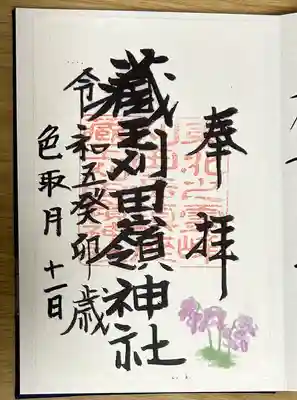 奉拝
藏王刈田嶺神社
令和五癸卯歳
色取月 十一日